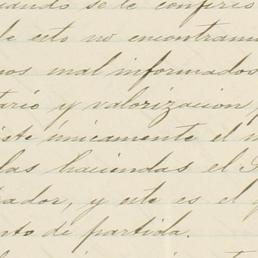 cuando se le confiri
de esto no encontram
nos mal informados
tario y valorizacion
iste únicamente el m
las haciendas el S
ador, y este es el
nto de partida.